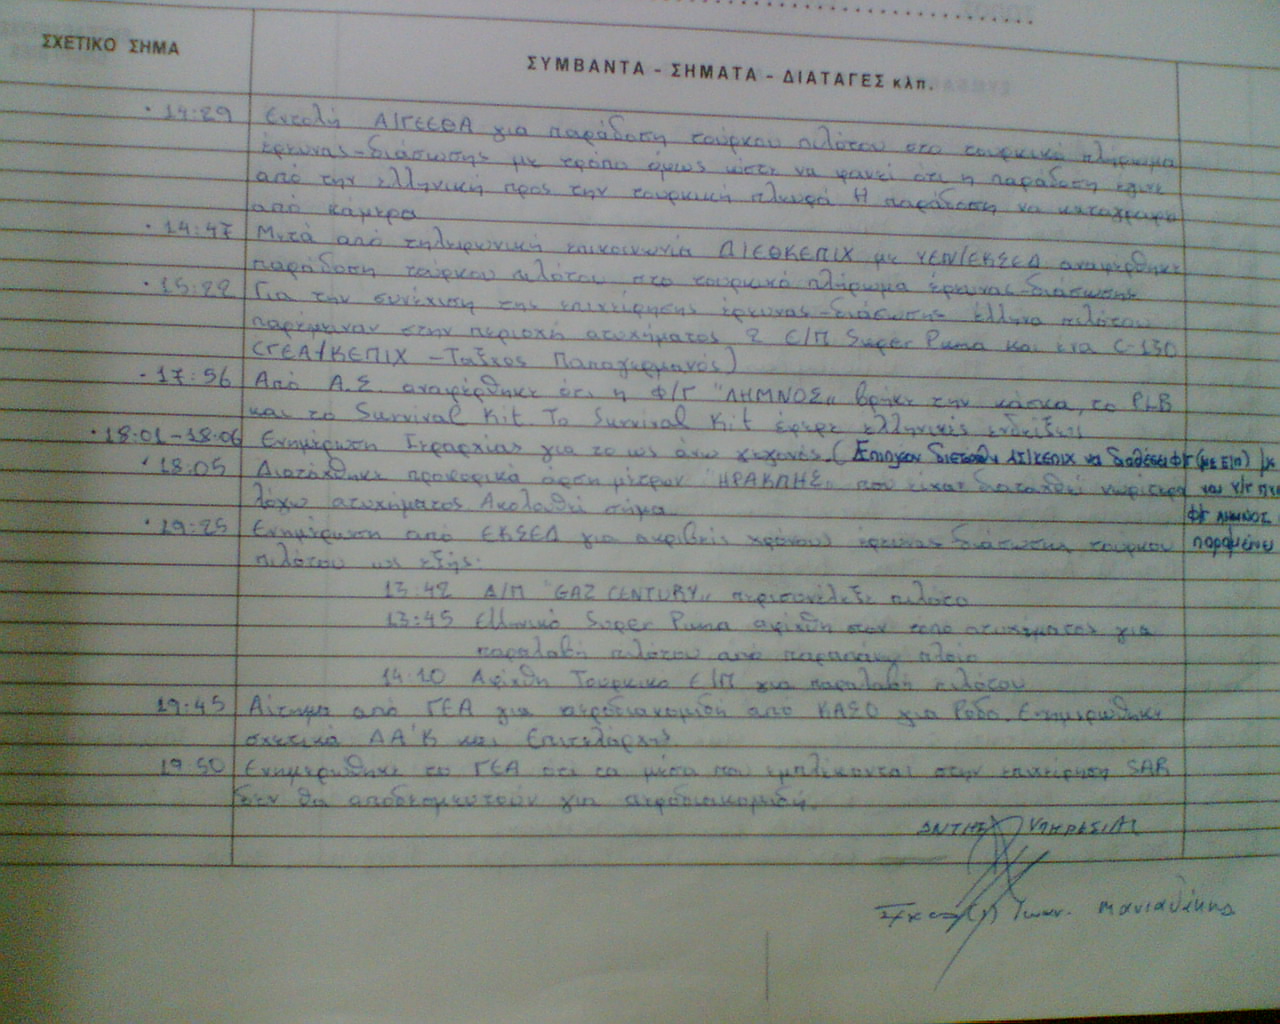 ΣΧΕΤΙΚΟ ΣΗΜΑ
ΣΥΜΒΑΝΤΑ - ΣΗΜΑΤΑ - ΔΙΑΤΑΓΕΣ κλπ.
· 14:29 Εντολή Α/ΓΕΕΘΑ για παράδοση τούρκου πιλότου στο τουρκικό πλήρωμα
έρευνας-διάσωσης με τρόπο όμως ώστε να φανεί ότι η παράδοση έγινε
από την ελληνική προς την τουρκική πλευρά Η παράδοση να καταγραφεί
από κάμερα
· 14:47 Μετά από τηλεφωνική επικοινωνία Δ/ΕΘΚΕΠΙΧ με ΥΕΝ/ΕΚΣΕΔ αναφέρθηκε
παράδοση τούρκου πιλότου στο τουρκικό πλήρωμα έρευνας-διάσωσης
· 15:22 Για την συνέχιση της επιχείρησης έρευνας-διάσωσης έλληνα πιλότου
παρέμειναν στην περιοχή ατυχήματος 2 Ε/Π Super Puma και ένα C-130
(ΓΕΑ/ΚΕΠΙΧ - Ταξχος Παπαγερμανός)
· 17:56 Από Α.Σ. αναφέρθηκε ότι η Φ/Γ "ΛΗΜΝΟΣ" βρήκε την κάσκα, το PLB
και το Survival Kit. Το Survival Kit έφερε ελληνικές ενδείξεις
· 18:01 - 18:06 Ενημέρωση Ιεραρχίας για το ως άνω γεγονός. (Επιπλέον διετάχθη ΑΣ/ΚΕΠΙΧ να διαθέσει Φ/Γ (με Ε/Π)
18:05 Διατάχθηκε προφορικά άρση μέτρων "ΗΡΑΚΛΗΣ" που είχαν διαταχθεί νωρίτερα
και Κ/Γ
λόγω ατυχήματος Ακολουθεί σήμα.
Φ/Γ ΛΗΜΝΟΣ
· 19:25 Ενημέρωση από ΕΚΣΕΔ για ακριβείς χρόνους έρευνας διάσωσης τούρκου
παραμένει
πιλότου ως εξής:
13:42 Δ/Π "GAZ CENTURY" περισυνέλεξε πιλότο
13:45 Ελληνικό Super Puma αφίχθη στον τόπο ατυχήματος για
παραλαβή πιλότου από παραπάνω πλοίο
14:10 Αφίχθη Τουρκικο Ε/Π για παραλαβή πιλότου
19:45 Αίτημα από ΓΕΑ για αεροδιακομιδή από ΚΑΣΟ για Ροδο. Ενημερώθηκε
σχετικά ΔΑ'Κ και Επιτελάρχης.
19 50 Ενημερώθηκε το ΓΕΑ ότι τα μέσα που εμπλέκονται στην επιχείρηση SAR
δεν θα αποδεσμευτούν για αεροδιακομιδή.
ΔΝΤΗΣ ΥΠΗΡΕΣΙΑΣ
Ιωαν.